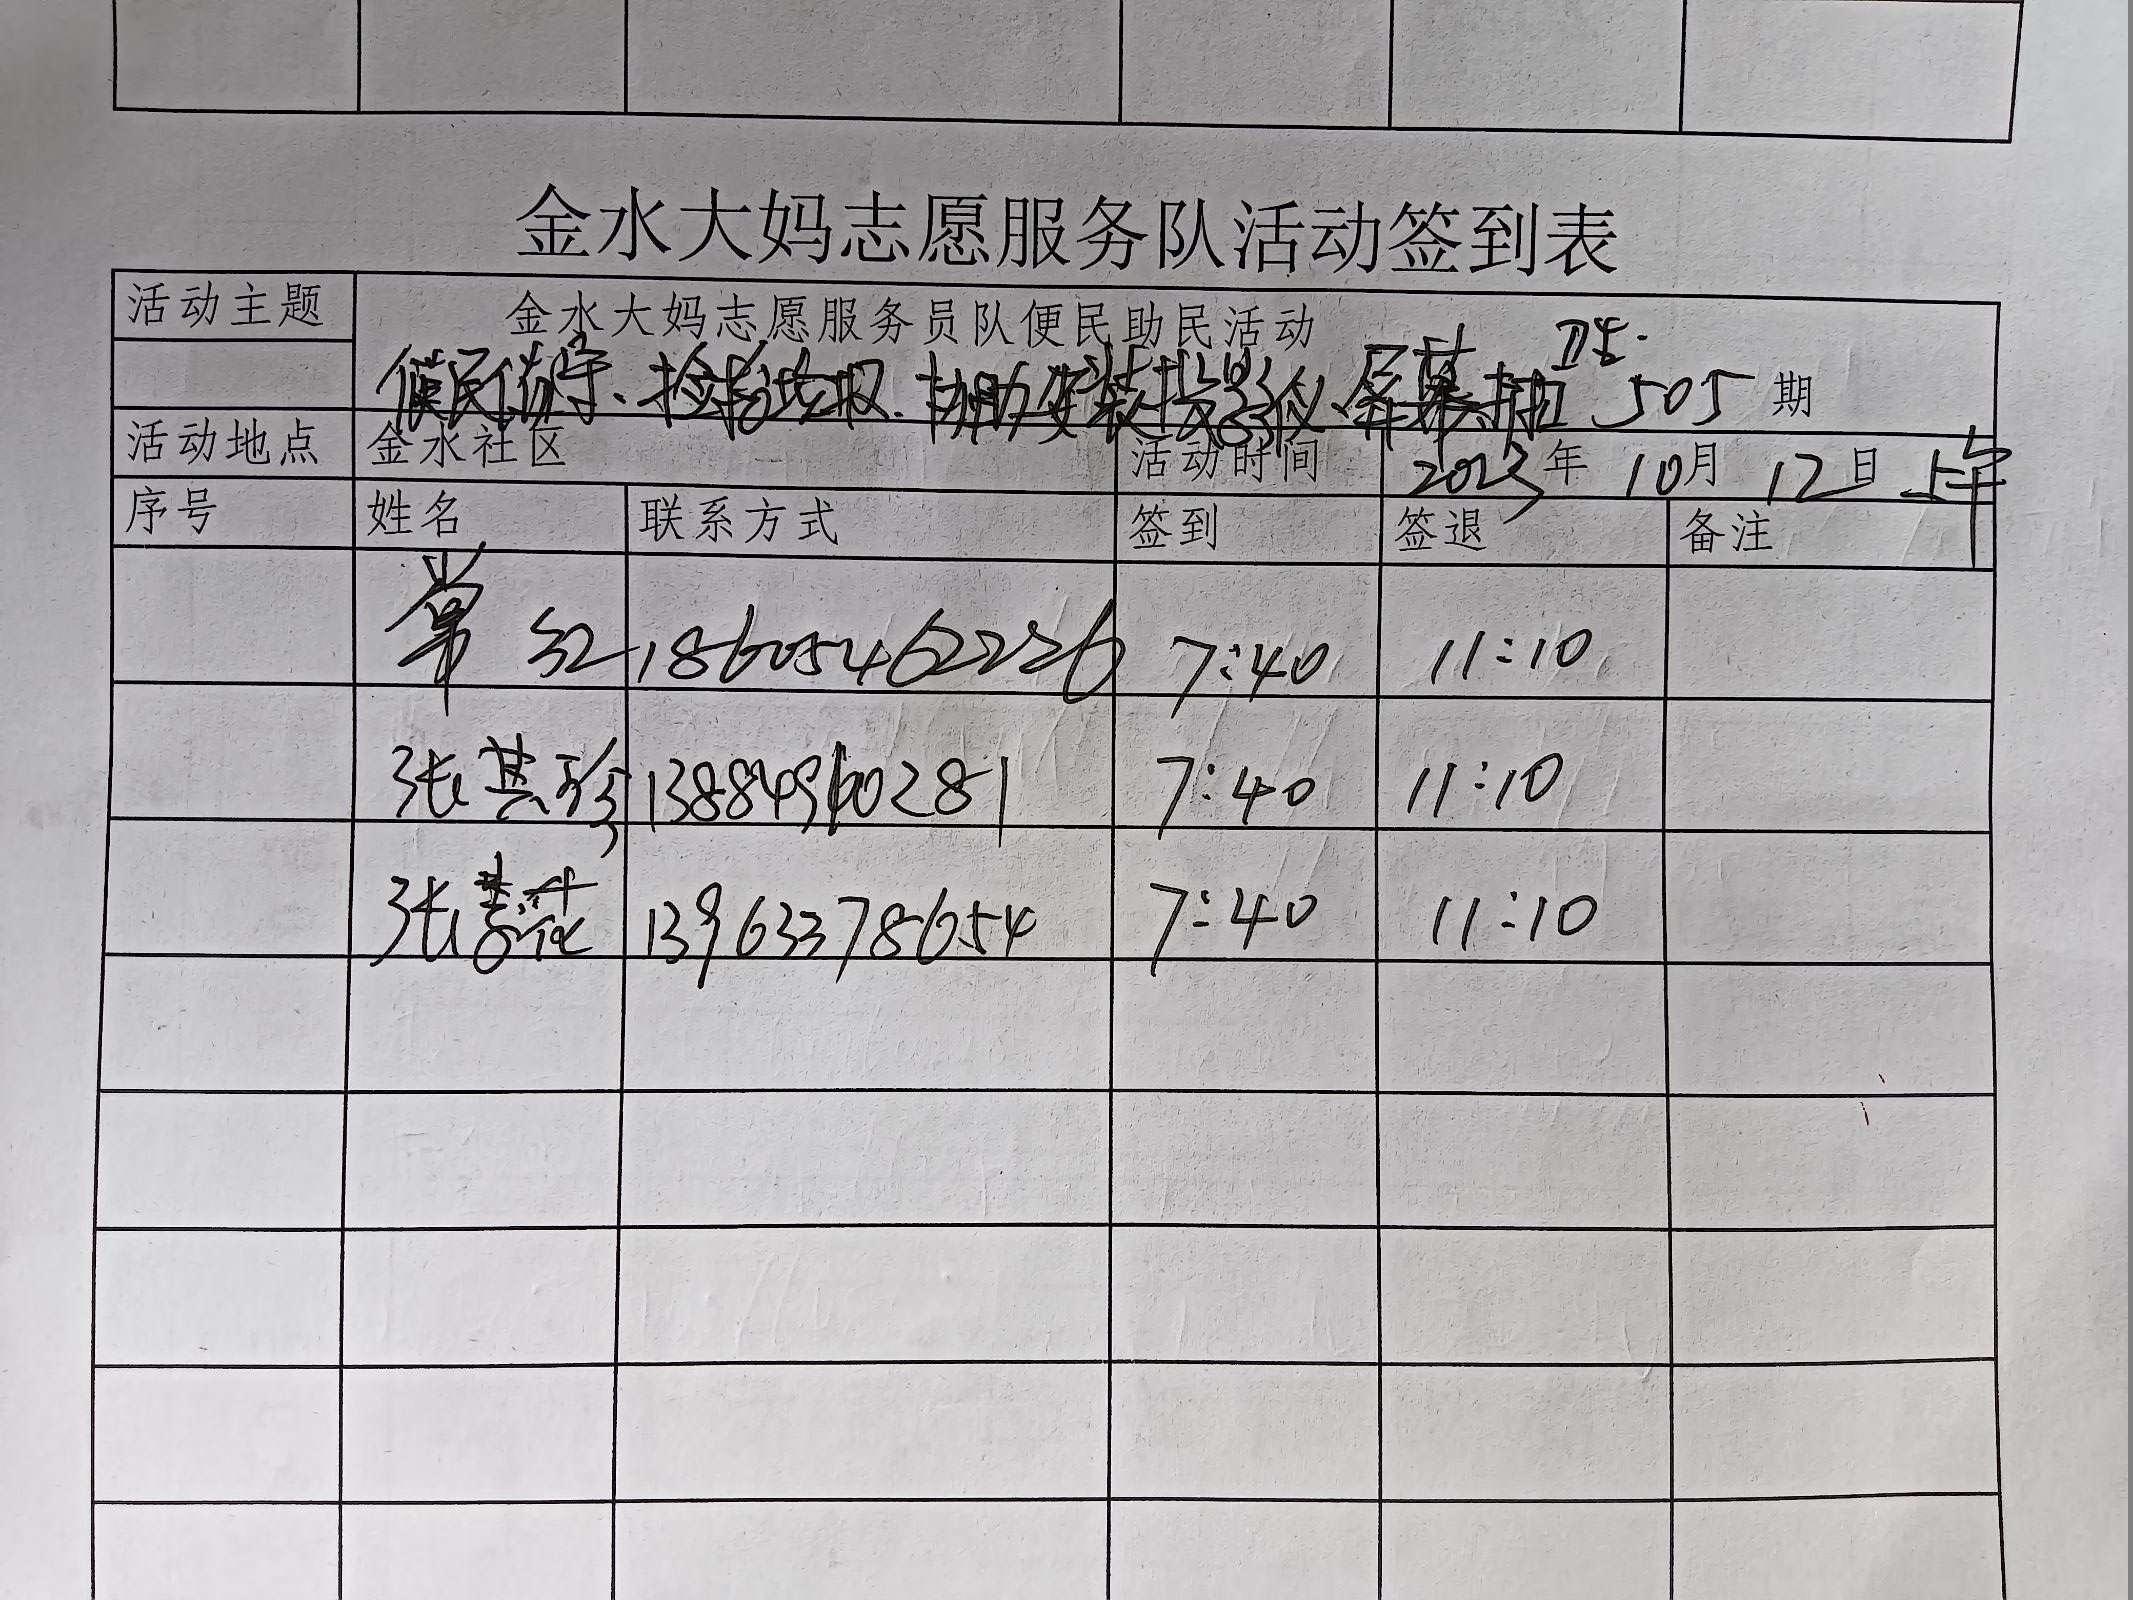 金水大妈志愿服务队活动签到表
活动主题 金水大妈志愿服务员队便民助民活动
便民 捡拾垃圾、协助安装投影仪、屏幕、打扫卫生. 505期
活动地点 金水社区 活动时间 2023年10月12日上午
序号 姓名 联系方式 签到 签退 备注
常红 18605462226 7:40 11:10
张其珍 7:40 11:10
张 花 13963378654 7:40 11:10